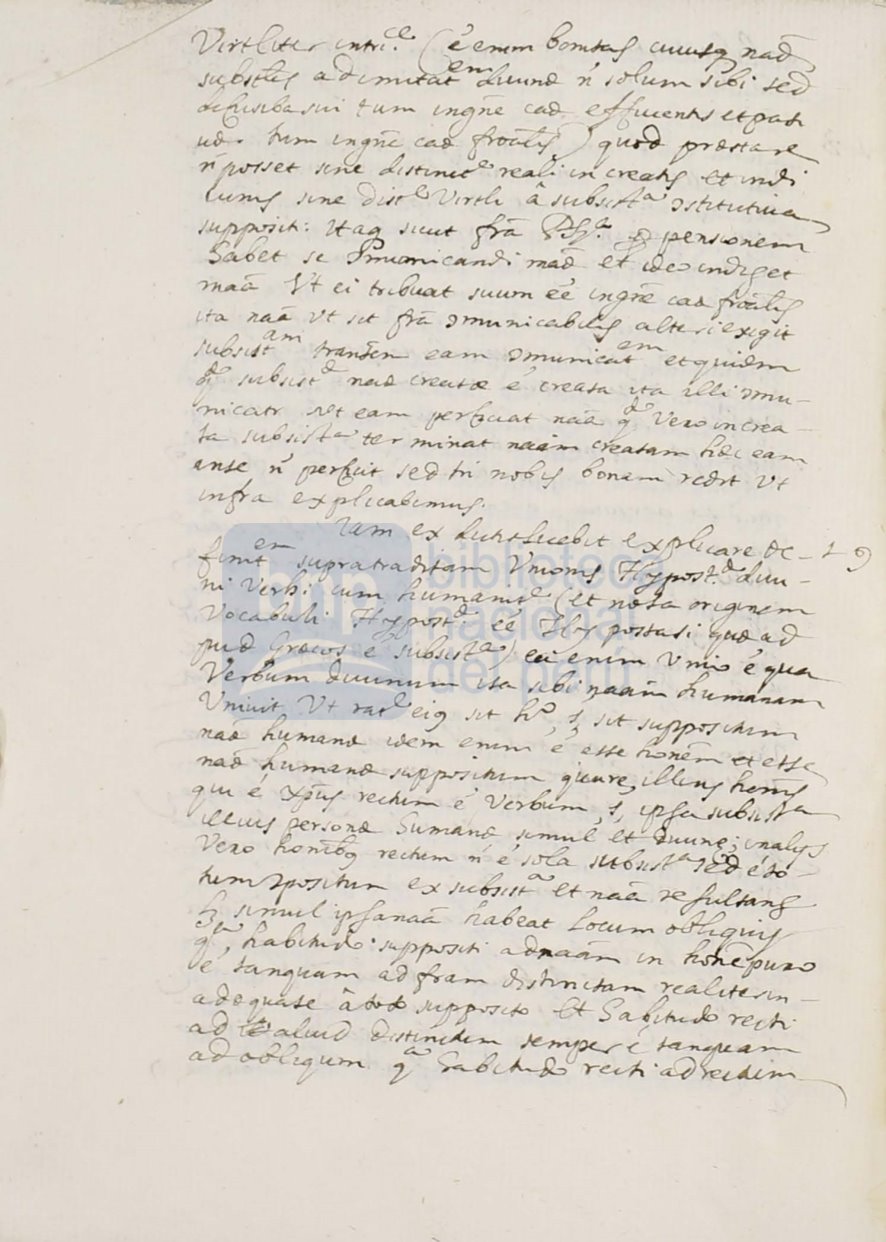 Virtliter intrice (é enim bonitas cuiusq nae
substlis ad imitatem diuinae n solum sibi sed
difusiba sui tum in gne cae efficientis et pati
uae. tum in gne cae froalis) quod praestare
n posset sine distincte reali in creatis et in di
uinis sine diste Virtli â subsista ɔstitutiua
suppositi: Itaq sicut fra Phya pensionem
habet se ɔmunicandi mae et ideo indiget
maa Vt ei tribuat suum eé in gre cae froalis
ita naa vt sit fra ɔmunicabilis alteri exigit
subsistam eam ɔmunicatem et quidem
subsista nae creatae é creata ita illi ɔmu-
nicatr Vt eam perficiat naa qa Vero increa-
ta subsista terminat naam creatam haec eam
n perficit sed tri nobis bonam redt Vt
infra explicabimus.
Iam ex dictis licebit explicare de- 19
finitem supra traditam Vnionis Hypost.ae diui-
ni Verbi cum humanite (et nota originem
Vocabuli Hypostae: eé Hypostasi quae ad
pud Graecos é subsista) ea enim Vnio é qua
Verbum diuinum ita sibi naam humanam
Vniuit Vt rate eiq sit ho, s, sit suppositum
nae humanae idem enim é esse honem et esse
nae humanae suppositum quare illius honis
qui é Xpus rectum é Verbum, s, ipsa subsista
illius personae humanae simul et diuinae; in alijs
Vero honibq rectum n é sola subsista sed é to-
tum ɔpositum ex subsista et naa resultans
simul ipsa naa habeat locum obliqui
qa, habitudo suppositi ad naam in hone puro
é tanquam ad fram distinctam realiter in-
adequate â toto supposito Et habitudo recti
ad aliud distinctum semper é tanquam
ad obliqum qa habitudo recti ad rectum